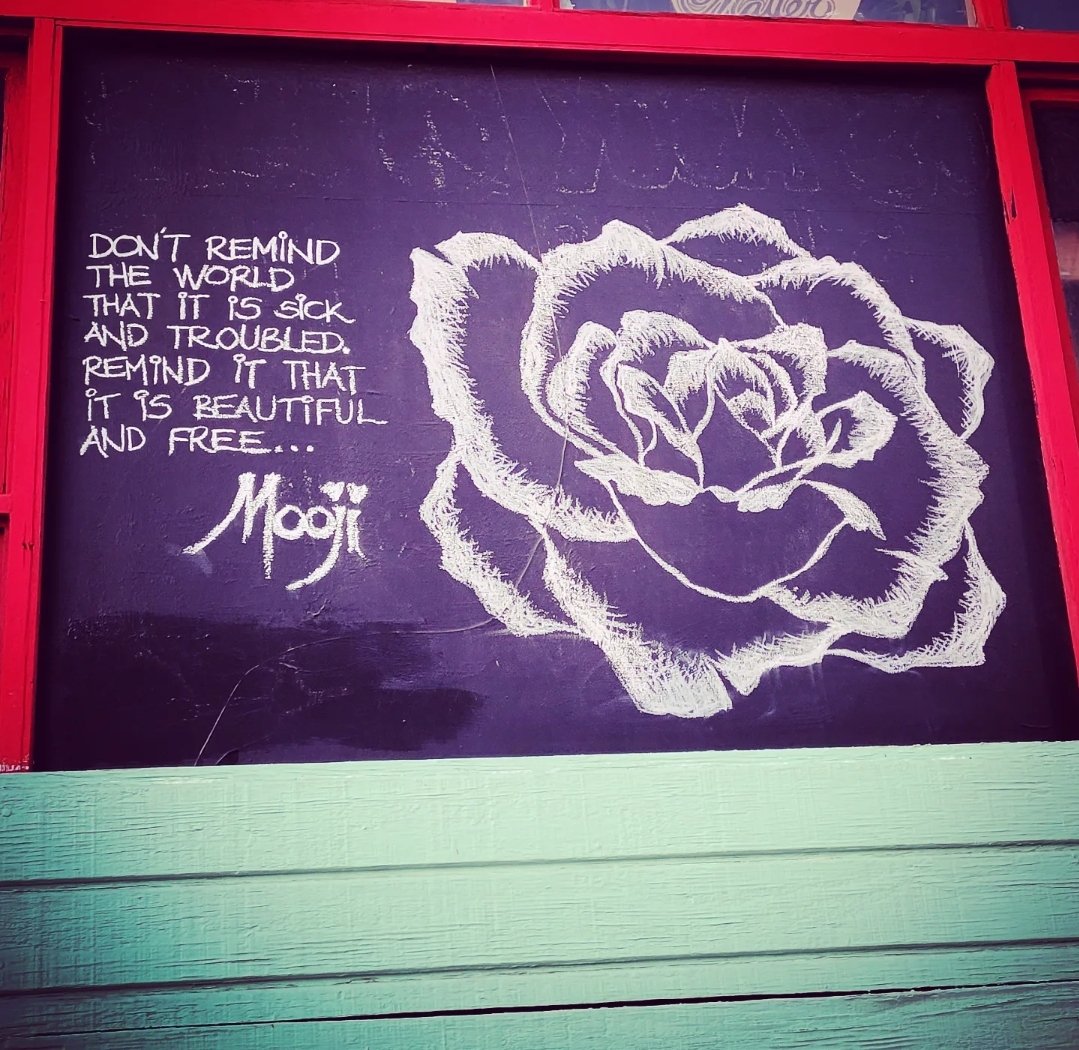 Matter
DON'T REMIND
THE WORLD
THAT IT IS SICK
AND TROUBLED.
REMIND IT THAT
IT IS BEAUTIFUL
AND FREE...
Mooji